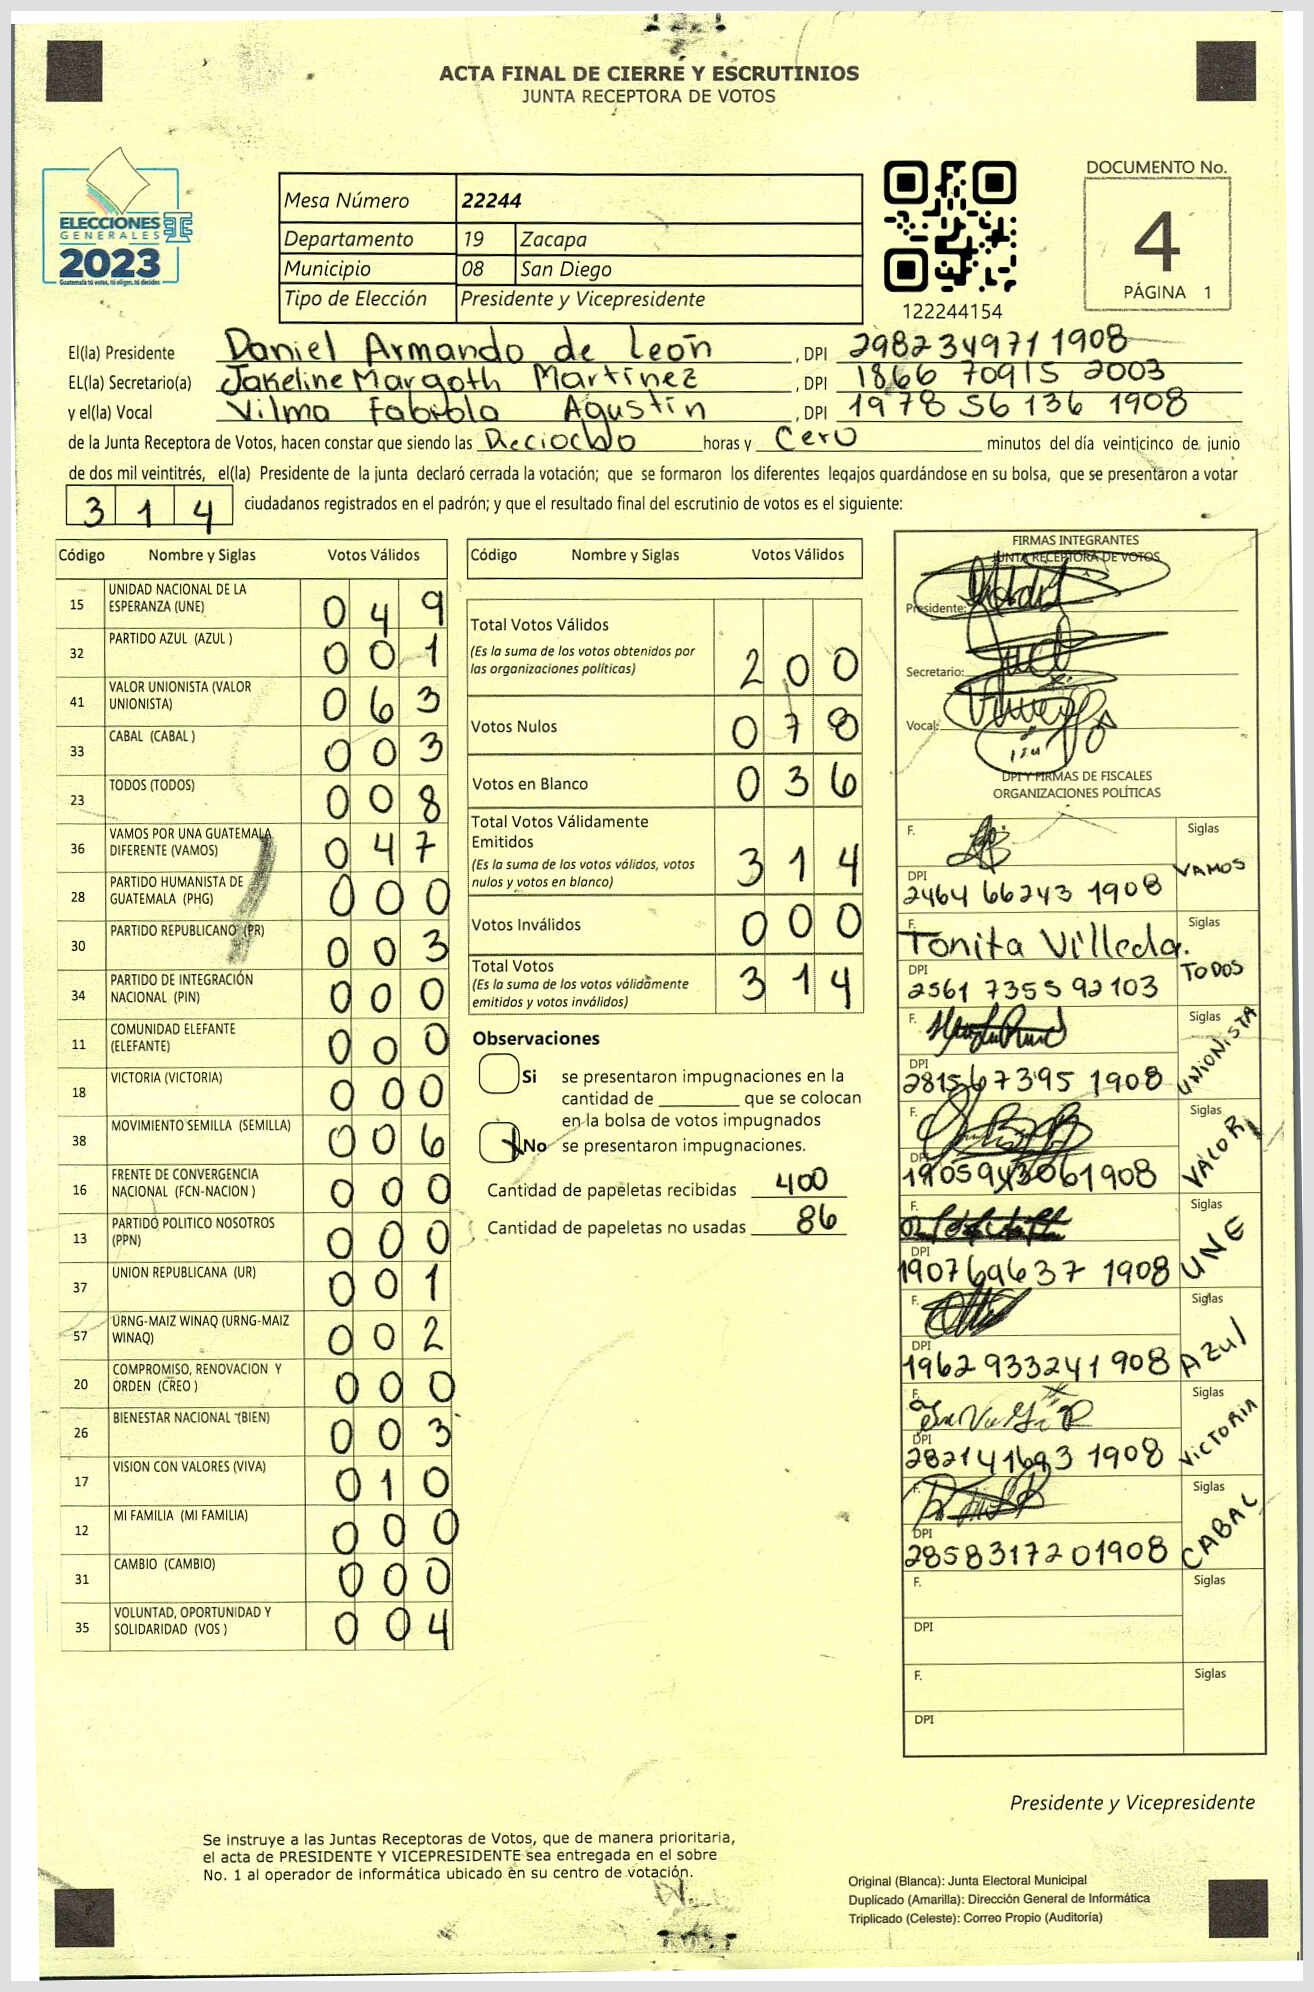 ACTA FINAL DE CIERRE Y ESCRUTINIOS
JUNTA RECEPTORA DE VOTOS
ELECCIONES
GENERALES
2023
Guatemala tú votas, tú eliges, tú decides
Mesa Número 22244
Departamento 19 Zacapa
Municipio 08 San Diego
Tipo de Elección Presidente y Vicepresidente
122244154
DOCUMENTO No.
4
PÁGINA 1
El(la) Presidente Daniel Armando de León , DPI 2982349711908
EL(la) Secretario(a) Jakeline Margoth Martínez , DPI 1866 70915 2003
y el(la) Vocal Vilma Fabiola Agustín , DPI 1978 56 136 1908
de la Junta Receptora de Votos, hacen constar que siendo las Dieciocho horas y Cero minutos del día veinticinco de junio
de dos mil veintitrés, el(la) Presidente de la junta declaró cerrada la votación; que se formaron los diferentes legajos guardándose en su bolsa, que se presentaron a votar
314 ciudadanos registrados en el padrón; y que el resultado final del escrutinio de votos es el siguiente:
Código Nombre y Siglas Votos Válidos
15 UNIDAD NACIONAL DE LA ESPERANZA (UNE) 049
32 PARTIDO AZUL (AZUL ) 001
41 VALOR UNIONISTA (VALOR UNIONISTA) 063
33 CABAL (CABAL ) 003
23 TODOS (TODOS) 008
36 VAMOS POR UNA GUATEMALA DIFERENTE (VAMOS) 047
28 PARTIDO HUMANISTA DE GUATEMALA (PHG) 000
30 PARTIDO REPUBLICANO (PR) 003
34 PARTIDO DE INTEGRACIÓN NACIONAL (PIN) 000
11 COMUNIDAD ELEFANTE (ELEFANTE) 000
18 VICTORIA (VICTORIA) 000
38 MOVIMIENTO SEMILLA (SEMILLA) 006
16 FRENTE DE CONVERGENCIA NACIONAL (FCN-NACION ) 000
13 PARTIDO POLITICO NOSOTROS (PPN) 000
37 UNION REPUBLICANA (UR) 001
57 URNG-MAIZ WINAQ (URNG-MAIZ WINAQ) 002
20 COMPROMISO, RENOVACION Y ORDEN (CREO ) 000
26 BIENESTAR NACIONAL (BIEN) 003
17 VISION CON VALORES (VIVA) 010
12 MI FAMILIA (MI FAMILIA) 000
31 CAMBIO (CAMBIO) 000
35 VOLUNTAD, OPORTUNIDAD Y SOLIDARIDAD (VOS ) 004
Código Nombre y Siglas Votos Válidos
Total Votos Válidos
(Es la suma de los votos obtenidos por
las organizaciones políticas) 200
Votos Nulos 078
Votos en Blanco 036
Total Votos Válidamente
Emitidos
(Es la suma de los votos válidos, votos
nulos y votos en blanco) 314
Votos Inválidos 000
Total Votos
(Es la suma de los votos válidamente
emitidos y votos inválidos) 314
Observaciones
Si se presentaron impugnaciones en la
cantidad de ________ que se colocan
en la bolsa de votos impugnados
X No se presentaron impugnaciones.
Cantidad de papeletas recibidas 400
Cantidad de papeletas no usadas 86
FIRMAS INTEGRANTES
JUNTA RECEPTORA DE VOTOS
Presidente:
Secretario:
Vocal:
DPI Y FIRMAS DE FISCALES
ORGANIZACIONES POLÍTICAS
F. Siglas
DPI VAMOS
2464 66243 1908
F. Siglas
Tonita Villeda.
DPI TODOS
2561 7355 92103
F. Siglas
DPI UNIONISTA
281567395 1908
F. Siglas
DPI VALOR
1905943061908
F. Siglas
DPI UNE
190769637 1908
F. Siglas
DPI AZUl
1962 933241 908
F. Siglas
DPI VICTORIA
282141693 1908
F. Siglas
DPI CABAL
2858317201908
F. Siglas
DPI
F. Siglas
DPI
Presidente y Vicepresidente
Se instruye a las Juntas Receptoras de Votos, que de manera prioritaria,
el acta de PRESIDENTE Y VICEPRESIDENTE sea entregada en el sobre
No. 1 al operador de informática ubicado en su centro de votación.
Original (Blanca): Junta Electoral Municipal
Duplicado (Amarilla): Dirección General de Informática
Triplicado (Celeste): Correo Propio (Auditoría)